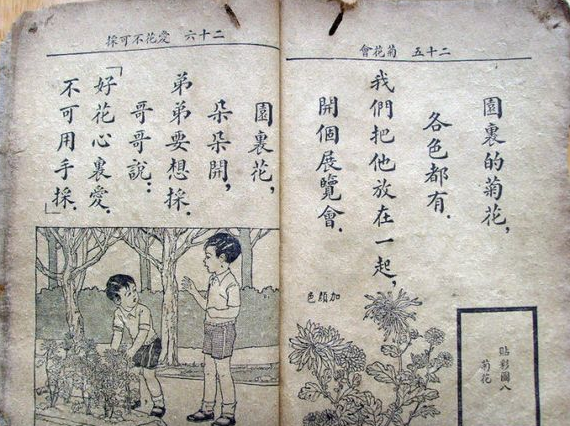 二十五 菊花會
園裏的菊花，
各色都有．
我們把他放在一起，
開個展覽會．
加顏色
貼彩圖八
菊花
二十六 愛花不可採
園裏花，
朵朵開，
弟弟要想採．
哥哥說：
「好花心裏愛．
不可用手採．」